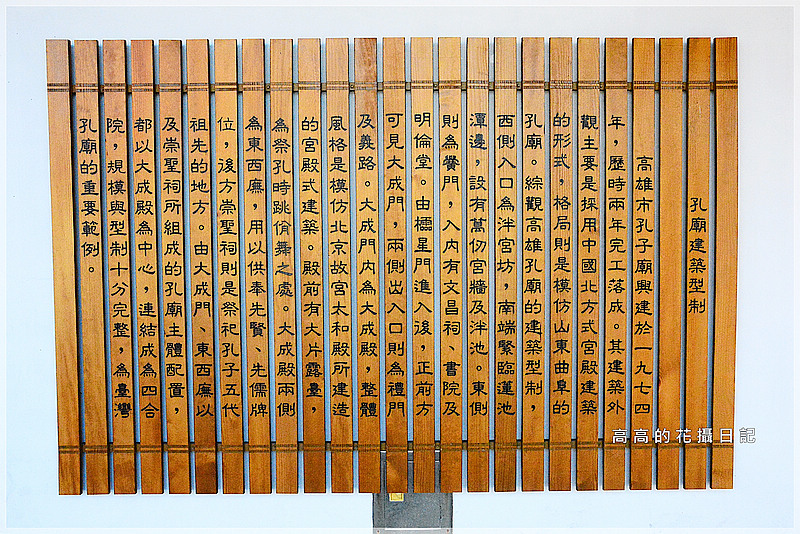 孔廟建築型制
高雄市孔子廟興建於一九七四
年，歷時兩年完工落成。其建築外
觀主要是採用中國北方式宮殿建築
的形式，格局則是模仿山東曲阜的
孔廟。綜觀高雄孔廟的建築型制，
西側入口為泮宮坊，南端緊臨蓮池
潭邊，設有萬仞宮牆及泮池。東側
則為黌門，入內有文昌祠、書院及
明倫堂。由櫺星門進入後，正前方
可見大成門，兩側出入口則為禮門
及義路。大成門內為大成殿，整體
風格是模仿北京故宮太和殿所建造
的宮殿式建築。殿前有大片露臺，
為祭孔時跳佾舞之處。大成殿兩側
為東西廡，用以供奉先賢、先儒牌
位，後方崇聖祠則是祭祀孔子五代
祖先的地方。由大成門、東西廡以
及崇聖祠所組成的孔廟主體配置，
都以大成殿為中心，連結成為四合
院，規模與型制十分完整，為臺灣
孔廟的重要範例。
高高的花攝日記